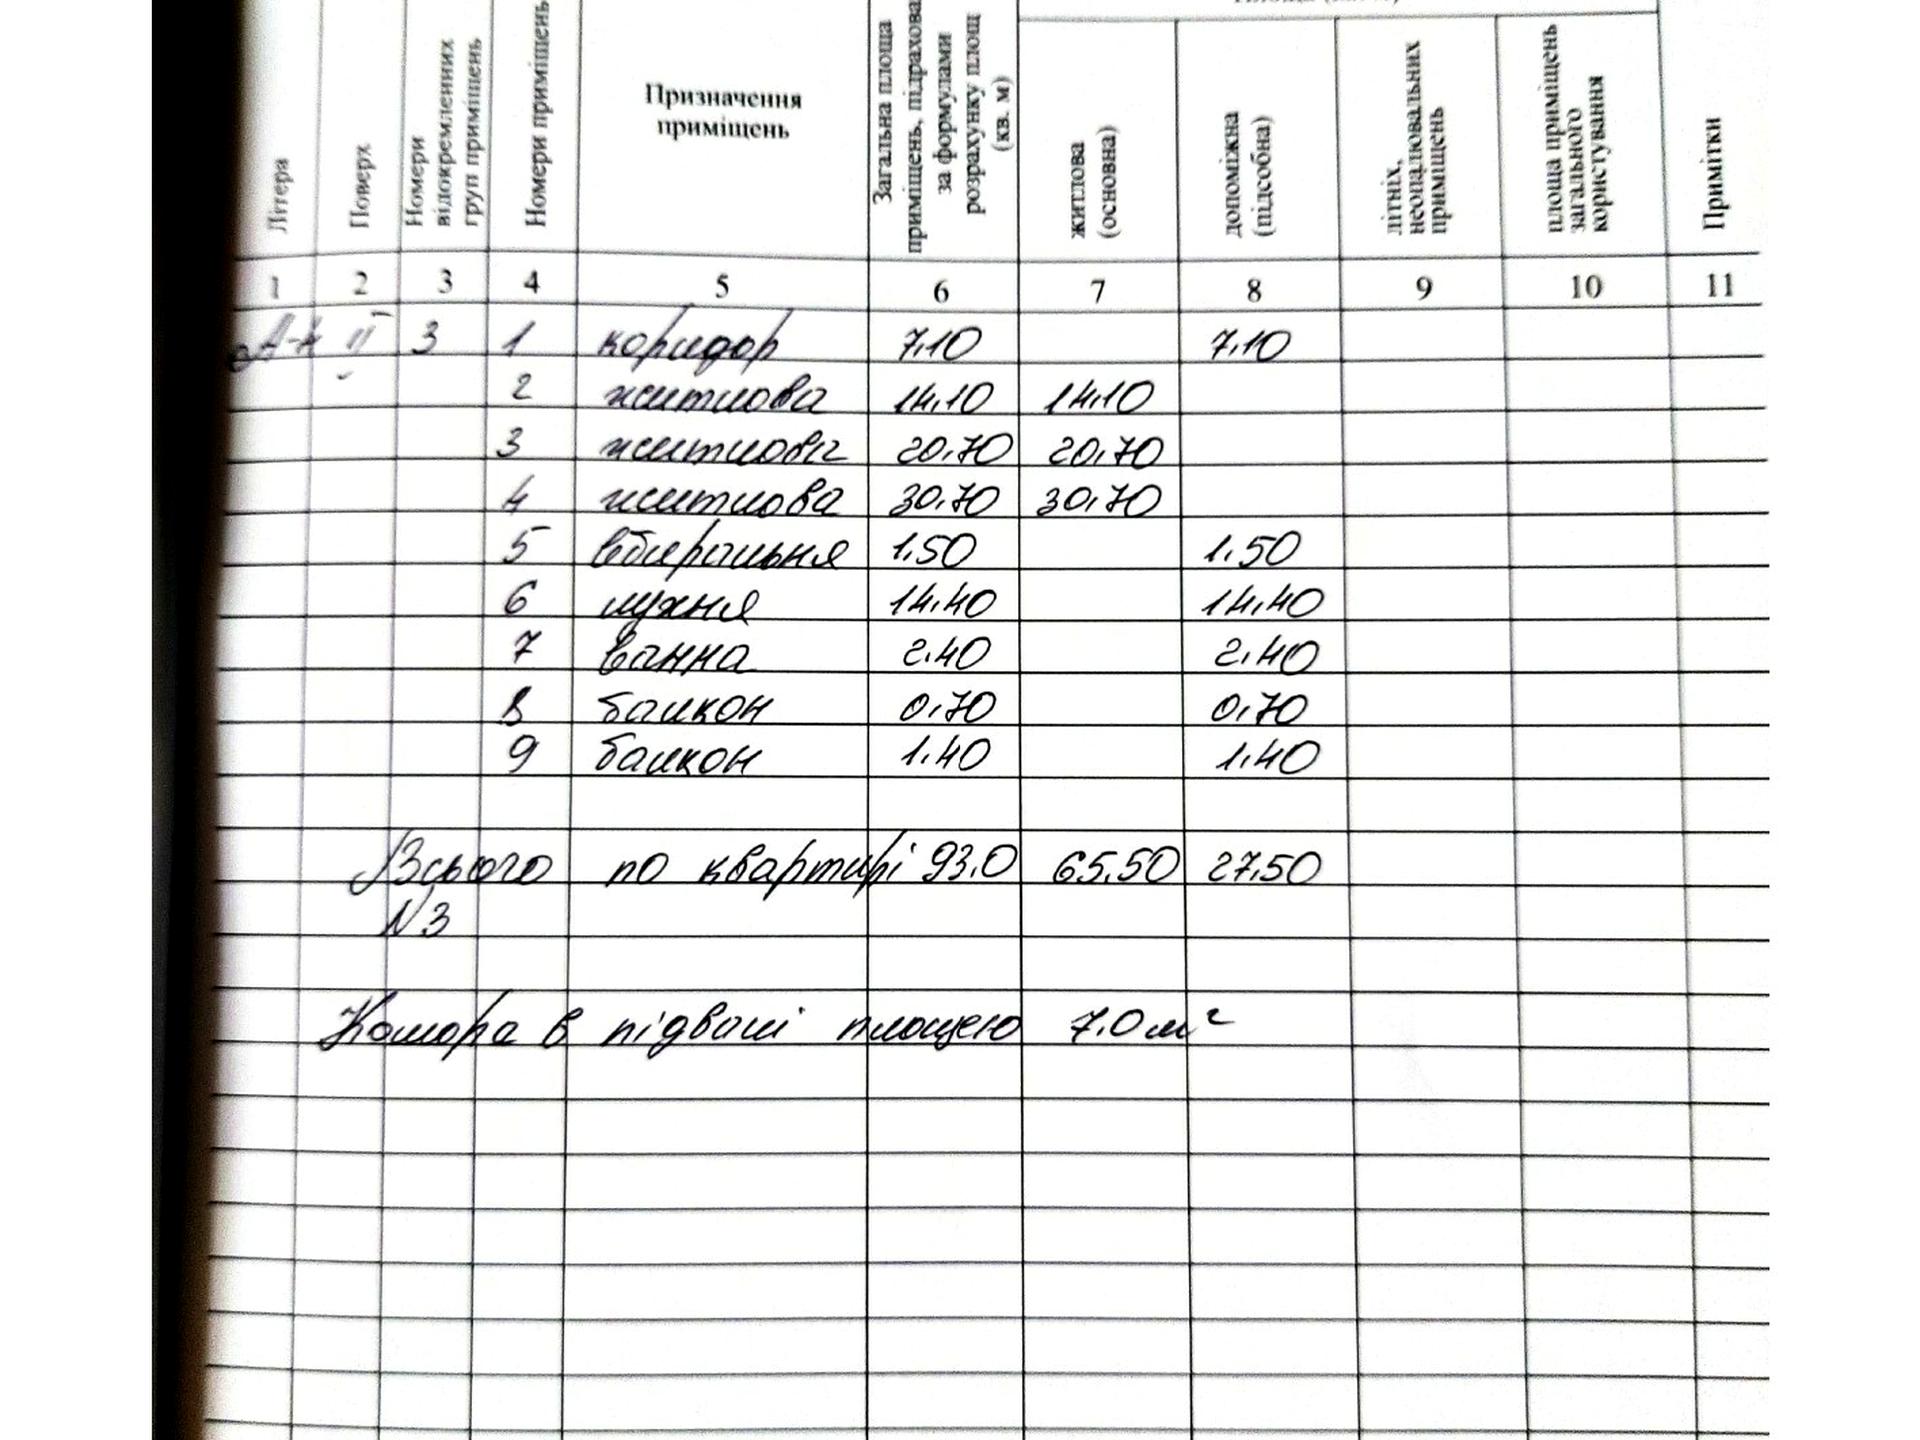 Літера Поверх Номери відокремленних груп приміщень Номери приміщень Призначення приміщень Загальна площа приміщень, підрахова за формулами розрахунку площ (кв. м) житлова (основна) допоміжна (підсобна) літніх, неопалювальних приміщень площа приміщень загального користування Примітки
1 2 3 4 5 6 7 8 9 10 11
А-4 II 3 1 коридор 7,10 7,10
2 житлова 14,10 14,10
3 житлова 20,70 20,70
4 житлова 30,70 30,70
5 вбиральня 1,50 1,50
6 кухня 14,40 14,40
7 ванна 2,40 2,40
8 балкон 0,70 0,70
9 балкон 1,40 1,40
Всього по квартирі 93,0 65,50 27,50
N3
Комора в підвалі площею 7,0 м²